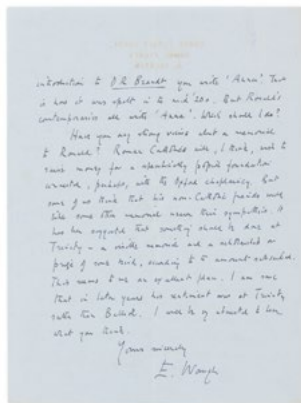 introduction to DR Brandt you write 'Anna'. That
is how it was spelt in the mid '20s. But Ronald's
contemporaries all write 'Anna'. Which should I do?
Have you any strong views about a memorial
to Ronald? Roman Catholics will, I think, wish to
raise money for a specifically popish foundation
connected, perhaps, with the Oxford chaplaincy. But
some of us think that his non-Catholic friends would
like some other memorial nearer their sympathies. It
has been suggested that something should be done at
Trinity - a visible memorial and a scholarship or
prize of some kind, according to the amount subscribed.
This seems to me an excellent plan. I am sure
that in later years his sentiment was at Trinity
rather than Balliol. I would be grateful to know
what you think.
Yours sincerely
E. Waugh